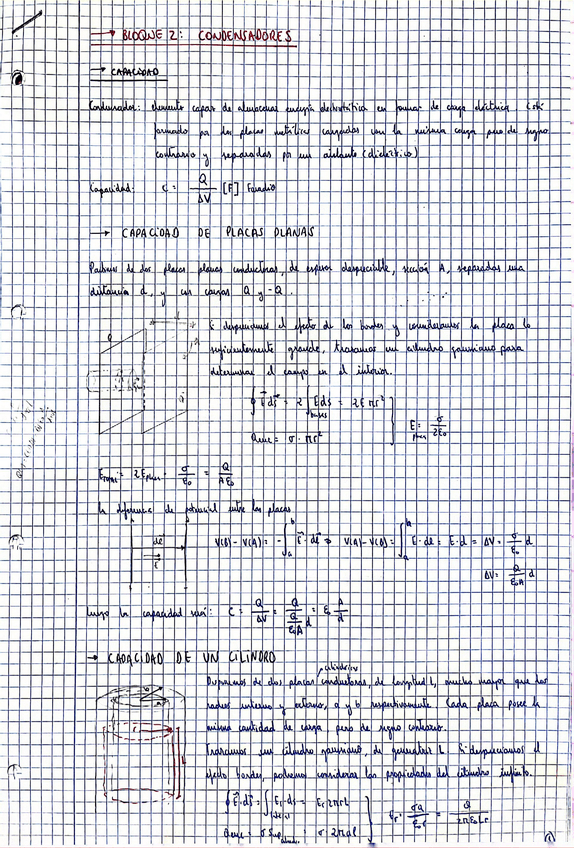 → BLOQUE 2: CONDENSADORES
→ CAPACIDAD
Condensador: elemento capaz de almacenar energía electrostática en forma de carga eléctrica. Está
formado por dos placas metálicas cargadas con la misma carga pero de signo
contrario y separadas por un aislante (dieléctrico)
Capacidad: C = Q/ΔV [F] Faradio
→ CAPACIDAD DE PLACAS PLANAS
Partimos de dos placas planas conductoras, de espesor despreciable, sección A, separadas una
distancia d, y con cargas Q y -Q.
Si despreciamos el efecto de los bordes y consideramos la placa lo
suficientemente grande, trazamos un cilindro gaussiano para
determinar el campo en el interior.
∮ E ds = 2 ∫bases E ds = 2E πr²
Qenc = σ · πr²
Eplaca = σ/2ε₀
Etotal = 2Eplaca = σ/ε₀ = Q/Aε₀
la diferencia de potencial entre las placas
dl
E
V(B) - V(A) = - ∫ₐᵇ E · dl ⇒ V(A) - V(B) = ∫ₐᵇ E · dl = E · d = ΔV = σ/ε₀ d
ΔV = Q/ε₀A d
luego la capacidad será: C = Q/ΔV = Q/(Q/ε₀A d) = ε₀ A/d
→ CAPACIDAD DE UN CILINDRO
cilíndricas
Disponemos de dos placas conductoras, de longitud L, mucho mayor que los
radios interno y externo, a y b respectivamente. Cada placa posee la
misma cantidad de carga, pero de signo contrario.
Trazamos un cilindro gaussiano, de generatriz L. Si despreciamos el
efecto bordes, podremos considerar las propiedades del cilindro infinito.
∮ E · ds = ∫ Er · ds = Er 2πrL
Qenc = σ · 2πaL
Er = σa/ε₀r = Q/2πε₀Lr